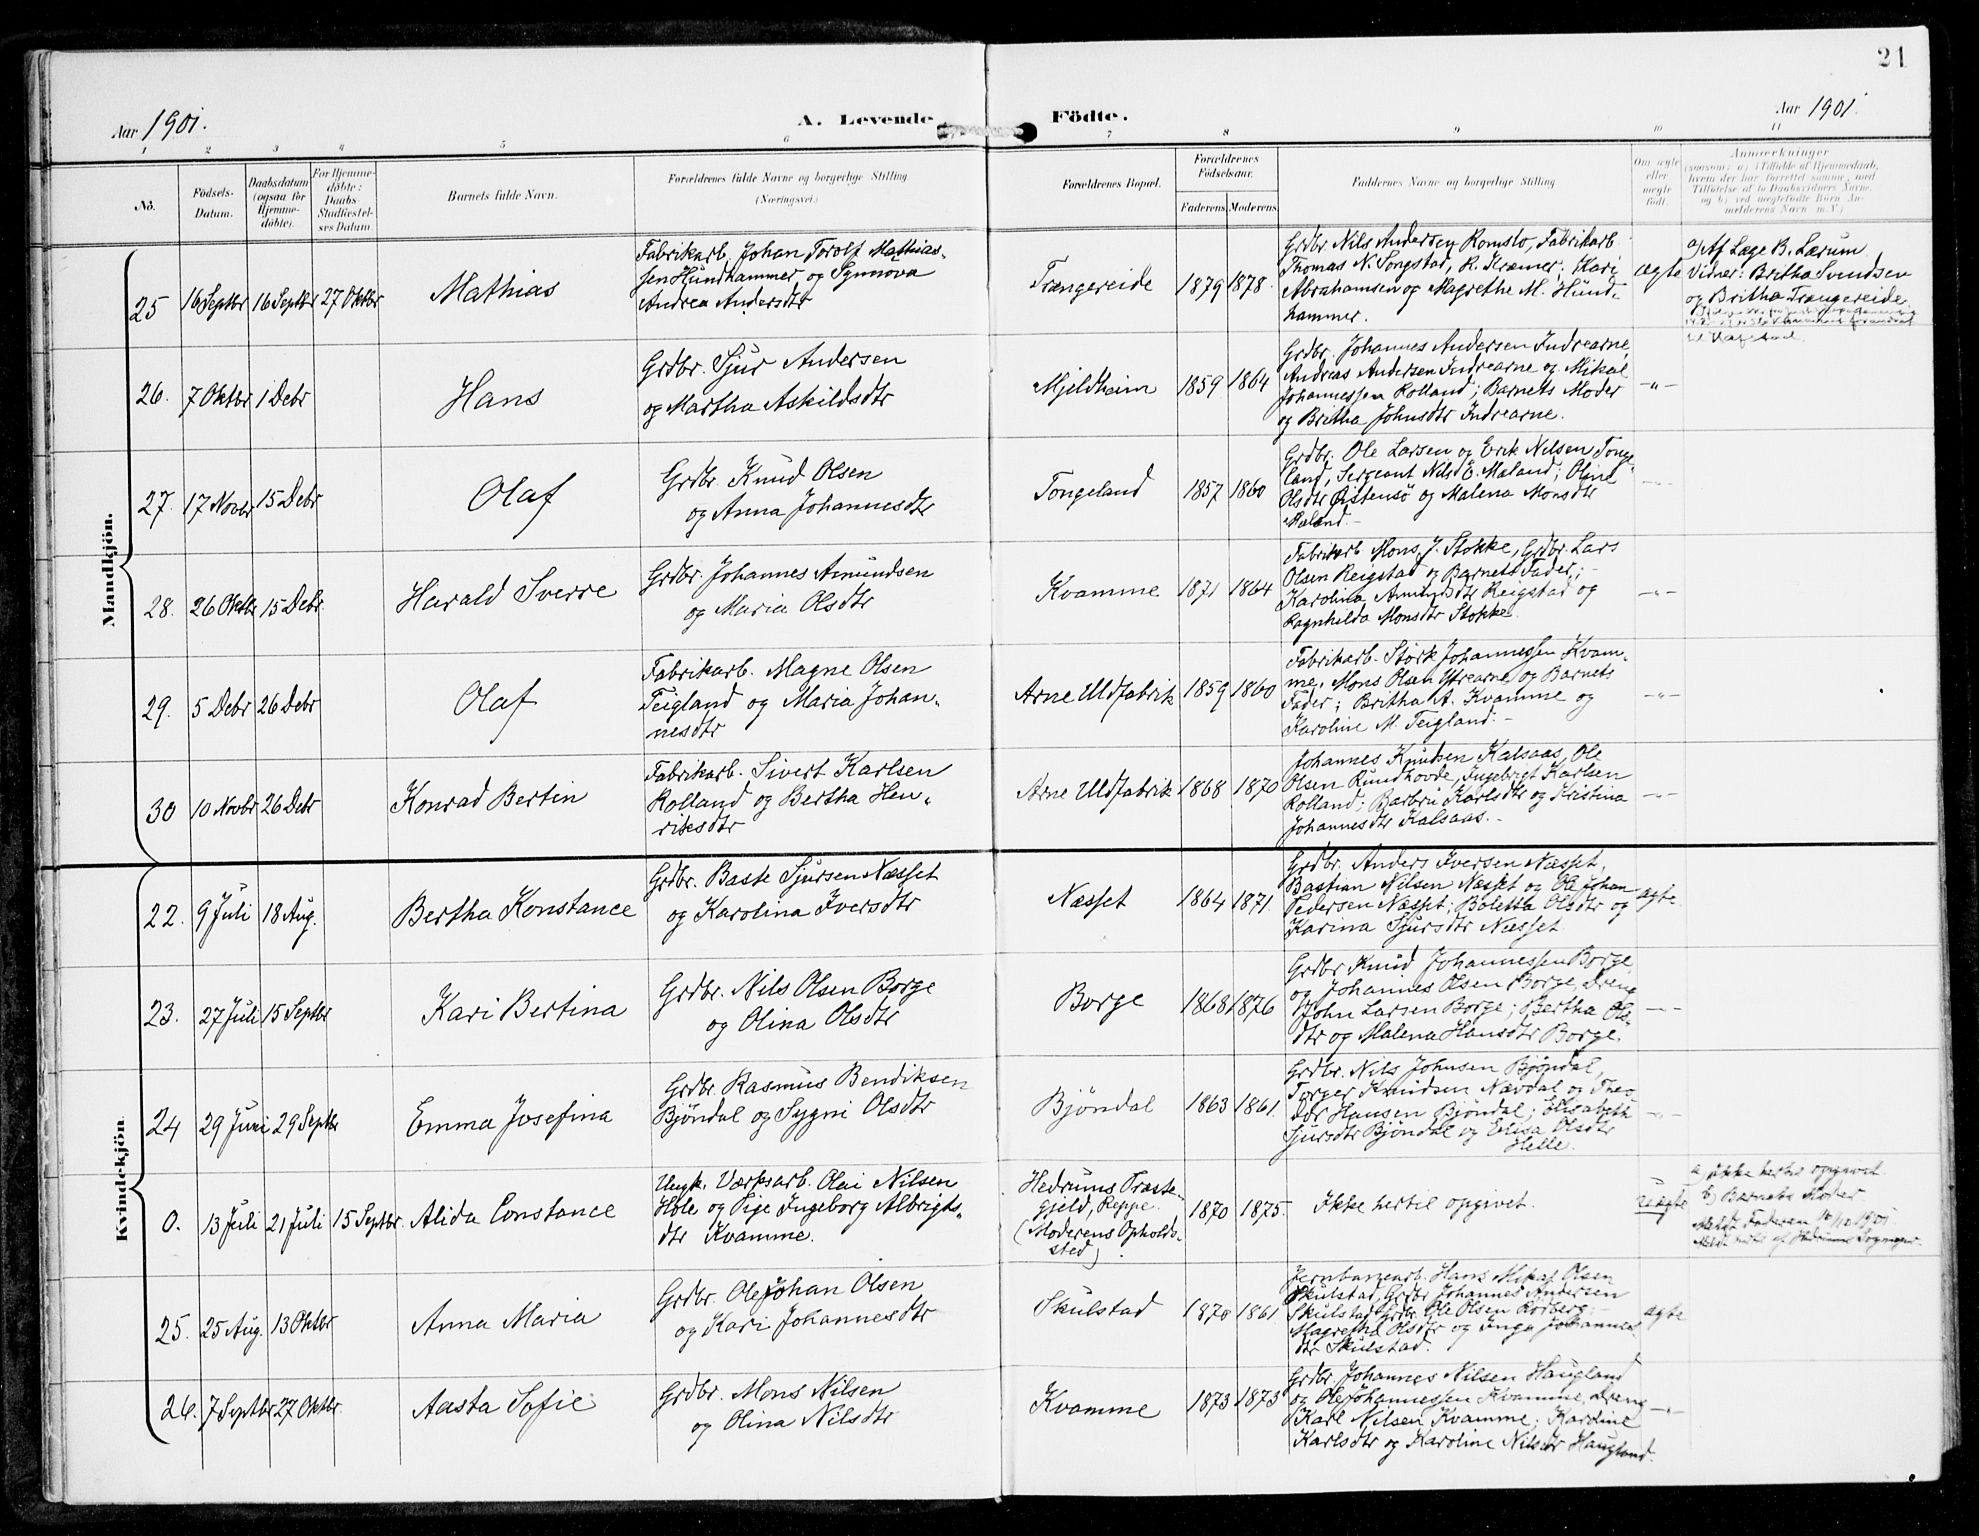 21
Aar 1901.
A. Levende
Födte.
Aar 1901.
1 2 3 4 5 6 7 8 9 10 11
No.
Födsels-
Datum.
Daabsdatum
(ogsaa for
Hjemme-
döbte).
For Hjemme-
döbte:
Daabs
Stadfæstel-
ses Datum
Barnets fulde Navn.
Forældrenes fulde Navne og borgerlige Stilling
(Næringsvei.)
Forældrenes Bopæl.
Forældrenes
Födselsaar.
Faderens. Moderens.
Faddernes Navne og borgerlige Stilling
Om ægte
eller
uægte
födt.
Anmærkninger
(saasom: a) i Tilfælde af Hjemmedaab,
hvem der har forrettet samme, med
Tilföielse af to Daabsvidners Navne.
og b) ved uægtefödte Börn An-
melderens Navn m. V.)
Mandkjön.
25 16 Septbr 16 Septbr 27 Oktbr
Mathias
Fabrikarb. Johan Torolf Mathias-
sen Hundhammer og Synnova
Andrea Andersdtr
Trængereide
1879 1878.
Grdbr. Nils Andersen Romslo, Fabrikarb.
Thomas N. Songstad, R. Kræmer. Kari
Abrahamsen og Magrethe M. Hund-
hammer.
ægte
a) Af Lage B. Lærum
Vidner: Britha Svendsen
og Britha Trængereide.
26. 7 Oktbr 1 Debr
Hans
Grdbr. Sjur Andersen
og Martha Askildsdtr
Mjeldheim
1859 1864
Grdbr. Johannes Andersen Indrearne,
Andreas Andersen Indrearne og Mikal
Johannessen Rolland; Barnets Moder
og Britha Johnsdtr Indrearne.
-"-
27. 17 Novbr 15 Debr
Olaf
Grdbr. Knud Olsen
og Anna Johannesdtr
Tongeland
1857 1860
Grdbr. Ole Larsen og Erik Nilsen Tonge-
land, Sergeant Nils E. Mæland; Oline
Olsdtr Østensø og Malena Monsdtr
Mæland.-
-"-
28. 26 Oktbr 15 Debr
Harald Sverre
Grdbr. Johannes Amundsen
og Maria Olsdtr
Kvamme
1871 1864
Fabrikarb Mons J. Stokke, Grdbr. Lars
Olsen Reigstad og Barnets Fader;-
Karolina Amundsdtr Reigstad og
Ragnhilda Monsdtr Stokke.
-"-
29. 5 Debr 26 Debr
Olaf
Fabrikarb. Magne Olsen
Teigland og Maria Johan-
nesdtr
Arne Uldfabrik
1859 1860
Fabrikarb. Størk Johannessen Kvam-
me, Mons Olsen Ytrearne og Barnets
Fader; Britha A. Kvamme og
Karoline M. Teigland.-
-"-
30 10 Novbr 26 Debr
Konrad Bertin
Fabrikarb. Sivert Karlsen
Rolland og Bertha Hen-
riksdtr
Arne Uldfabrik
1868 1870
Johannes Knudsen Kalsaas, Ole
Olsen Rundhovde, Ingebrigt Karlsen
Rolland; Barbru Karlsdtr og Kristina
Johannesdtr Kalsaas.-
-"-
Kvindekjön.
22. 9 Juli 18 Aug.
Bertha Konstance
Grdbr. Baste Sjursen Næsset
og Karolina Iversdtr
Næsset
1864 1871.
Grdbr. Anders Iversen Næsset,
Bastian Nilsen Næsset og Ole Johan
Pedersen Næsset; Boletta Olsdtr og
Karina Sjursdtr Næsset.
ægte.
23. 27 Juli 15 Septbr
Kari Bertina
Grdbr. Nils Olsen Borge
og Olina Olsdtr
Borge
1868 1876
Grdbr Knud Johannessen Borge,
og Johannes Olsen Borge, Dreng
John Larsen Borge; Bertha Ols-
dtr og Malena Hansdtr Borge.
-"-
24 29 Juni 29 Septbr
Emma Josefina
Grdbr. Rasmus Bendiksen
Bjöndal og Sygni Olsdtr
Bjöndal
1863 1861.
Grdbr. Nils Johnsen Bjöndal,
Torger Knudsen Nævdal og Theo-
dor Hansen Bjöndal; Elisabeth
Sjursdtr Bjöndal og Elisa Olsdtr
Helle.
-"-
0. 13 Juli 21 Juli 15 Septbr.
Alida Constance
Ungk. Værksarb. Olai Nilsen
Hole og Pige Ingeborg Albrigts-
dtr Kvamme.
Hedrums Præste-
gjeld, Reppe.
(Moderens Opholds-
sted)
1870 1875
Ikke hertil opgivet.
uægte
a) ikke hertil opgivet.
b) Barnets Moder
25. 25 Aug. 13 Oktbr
Anna Maria
Grdbr. Ole Johan Olsen
og Kari Johannesdtr
Skulstad
1870 1861
Jernbanearb. Hans Mikal Olsen
Skulstad, Grdbr Johannes Andersen
Skulstad, Grdbr. Ole Olsen Rodberg;-
Magretha Olsdtr og Inga Johannes-
dtr Skulstad.
ægte
26. 7 Septbr 27 Oktbr.
Aasta Sofie
Grdbr. Mons Nilsen
og Olina Nilsdtr
Kvamme
1873 1873
Grdbr. Johannes Nilsen Haugland
og Ole Johannessen Kvamme, Dreng
Karl Nilsen Kvamme; Kardine
Karlsdtr og Karoline Nilsdtr Haugland.
-"-